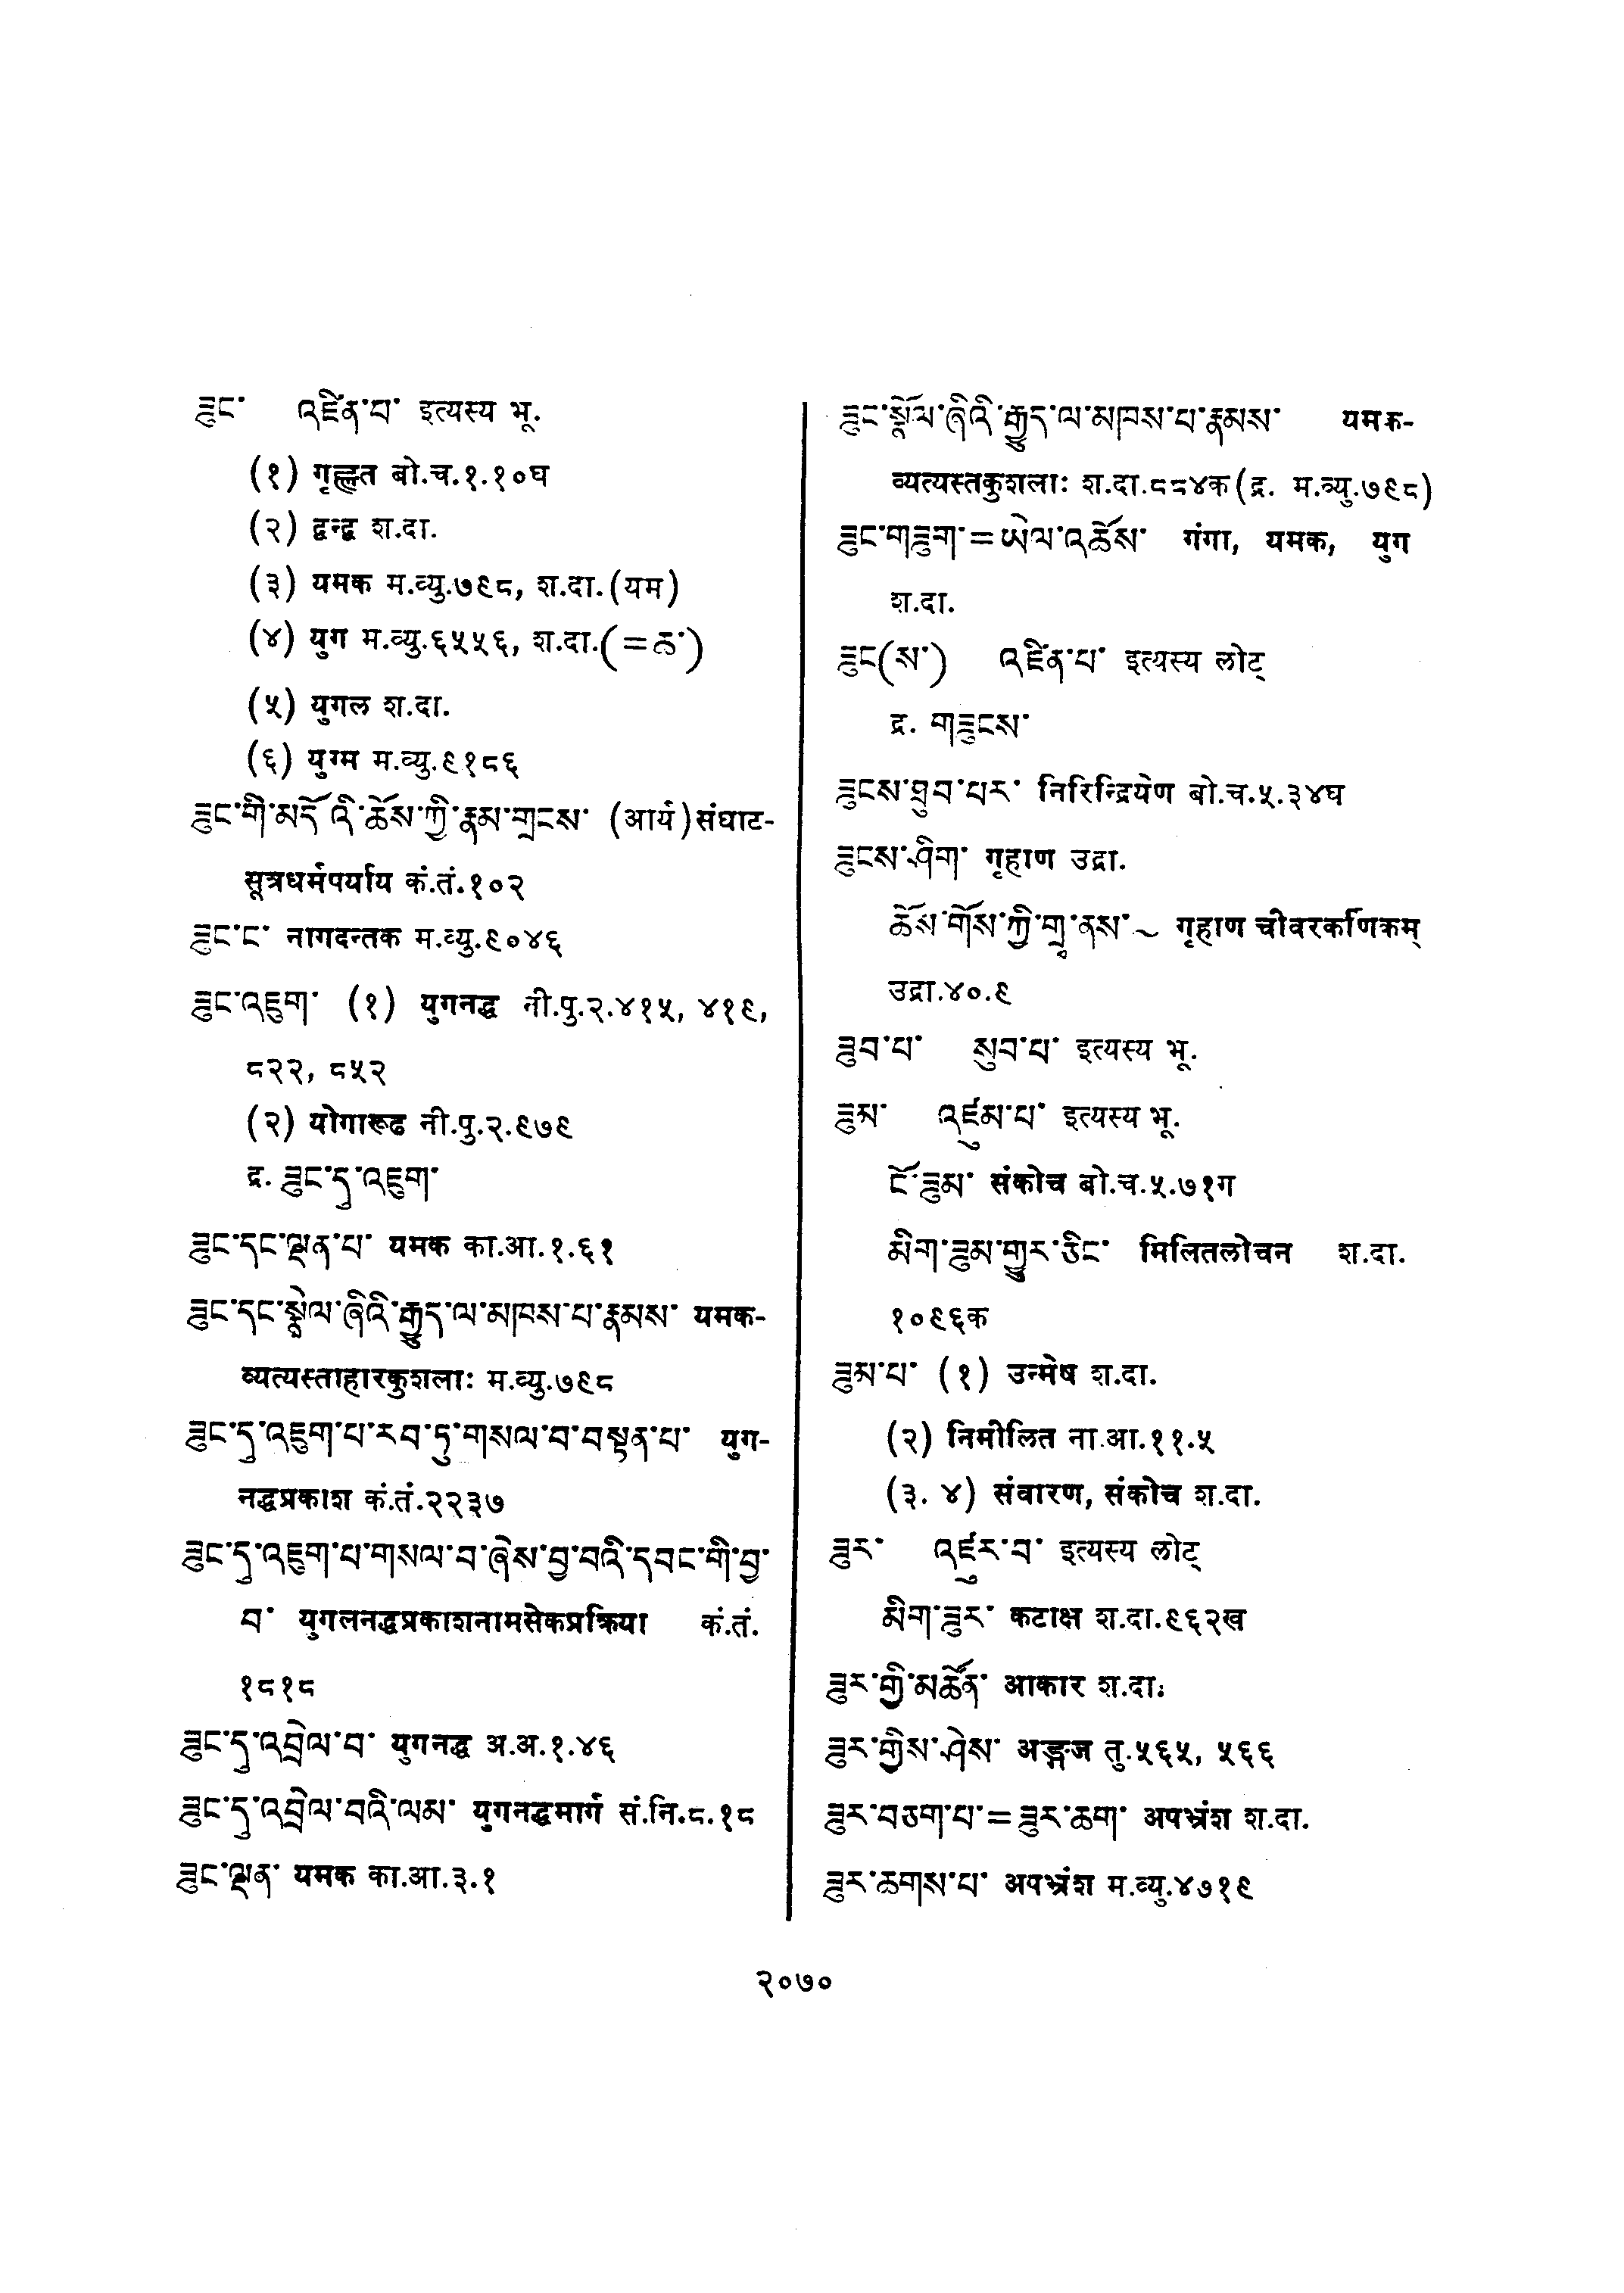 ཟུང་ འཛིན་པ་ इत्यस्य भू.
(१) गृह्णत बो.च.१.१०घ
(२) द्वन्द्व श.दा.
(३) यमक म.व्यु.७९८, श.दा.(यम)
(४) युग म.व्यु.६५५६, श.दा.(=ཆ་)
(५) युगल श.दा.
(६) युग्म म.व्यु.९१८६
ཟུང་གི་མདོའི་ཆོས་ཀྱི་རྣམ་གྲངས་ (आर्य)संघाट-
सूत्रधर्मपर्याय कं.तं.१०२
ཟུང་ང་ नागदन्तक म.व्यु.९०४६
ཟུང་འཇུག་ (१) युगनद्ध नी.पु.२.४१५, ४१९,
८२२, ८५२
(२) योगारूढ नी.पु.२.९७९
द्र. ཟུང་དུ་འཇུག་
ཟུང་དང་ལྡན་པ་ यमक का.आ.१.६१
ཟུང་དང་སྣྲེལ་ཞིའི་རྒྱུད་ལ་མཁས་པ་རྣམས་ यमक-
व्यत्यस्ताहारकुशलाः म.व्यु.७९८
ཟུང་དུ་འཇུག་པ་རབ་ཏུ་གསལ་བ་བསྟན་པ་ युग-
नद्धप्रकाश कं.तं.२२३७
ཟུང་དུ་འཇུག་པ་གསལ་བ་ཞེས་བྱ་བའི་དབང་གི་བྱ་
བ་ युगलनद्धप्रकाशनामसेकप्रक्रिया कं.तं.
१८१८
ཟུང་དུ་འབྲེལ་བ་ युगनद्ध अ.अ.१.४६
ཟུང་དུ་འབྲེལ་བའི་ལམ་ युगनद्धमार्ग सं.नि.८.१८
ཟུང་ལྡན་ यमक का.आ.३.१
ཟུང་སྣྲོལ་ཞིའི་རྒྱུད་ལ་མཁས་པ་རྣམས་ यमक-
व्यत्यस्तकुशलाः श.दा.८८४क(द्र. म.व्यु.७९८)
ཟུང་གཟུག་=ཡེལ་འཚོས་ गंगा, यमक, युग
श.दा.
ཟུང(ས་) འཛིན་པ་ इत्यस्य लोट्
द्र. གཟུངས་
ཟུངས་ཐུབ་པར་ निरिन्द्रियेण बो.च.५.३४घ
ཟུངས་ཤིག་ गृहाण उद्रा.
ཆོས་གོས་ཀྱི་གྲྭ་ནས་~ गृहाण चीवरकर्णिकम्
उद्रा.४०.९
ཟུབ་པ་ སུབ་པ་ इत्यस्य भू.
ཟུམ་ འཛུམ་པ་ इत्यस्य भू.
ངོ་ཟུམ་ संकोच बो.च.५.७१ग
མིག་ཟུམ་གྱུར་ཅིང་ मिलितलोचन श.दा.
१०९६क
ཟུམ་པ་ (१) उन्मेष श.दा.
(२) निमीलित ना.आ.११.५
(३. ४) संवारण, संकोच श.दा.
ཟུར་ འཛུར་བ་ इत्यस्य लोट्
མིག་ཟུར་ कटाक्ष श.दा.९६२ख
ཟུར་གྱི་མཚོན་ आकार श.दा.
ཟུར་གྱིས་ཤེས་ अङ्गज तु.५६५, ५६६
ཟུར་བཅག་པ་=ཟུར་ཆག་ अपभ्रंश श.दा.
ཟུར་ཆགས་པ་ अपभ्रंश म.व्यु.४७१९
२०७०